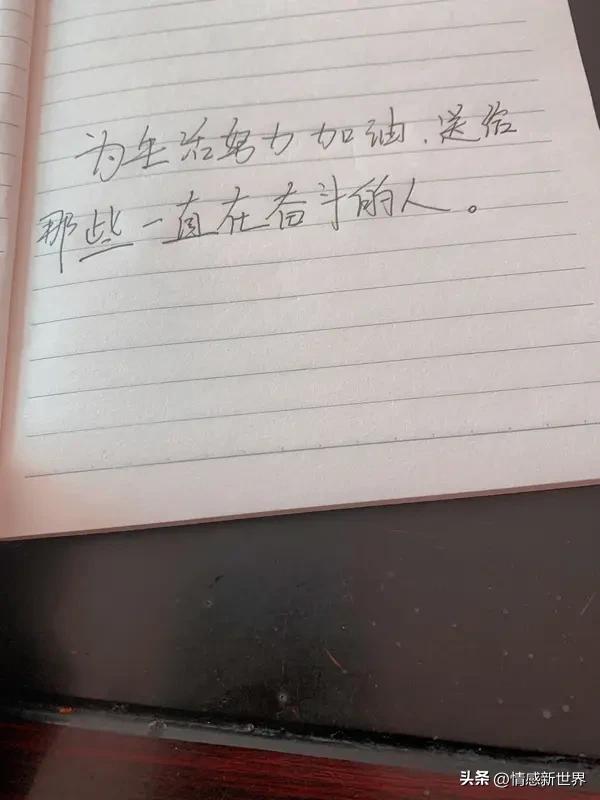 为生活努力加油.送给
那些一直在奋斗的人。
头条 @情感新世界